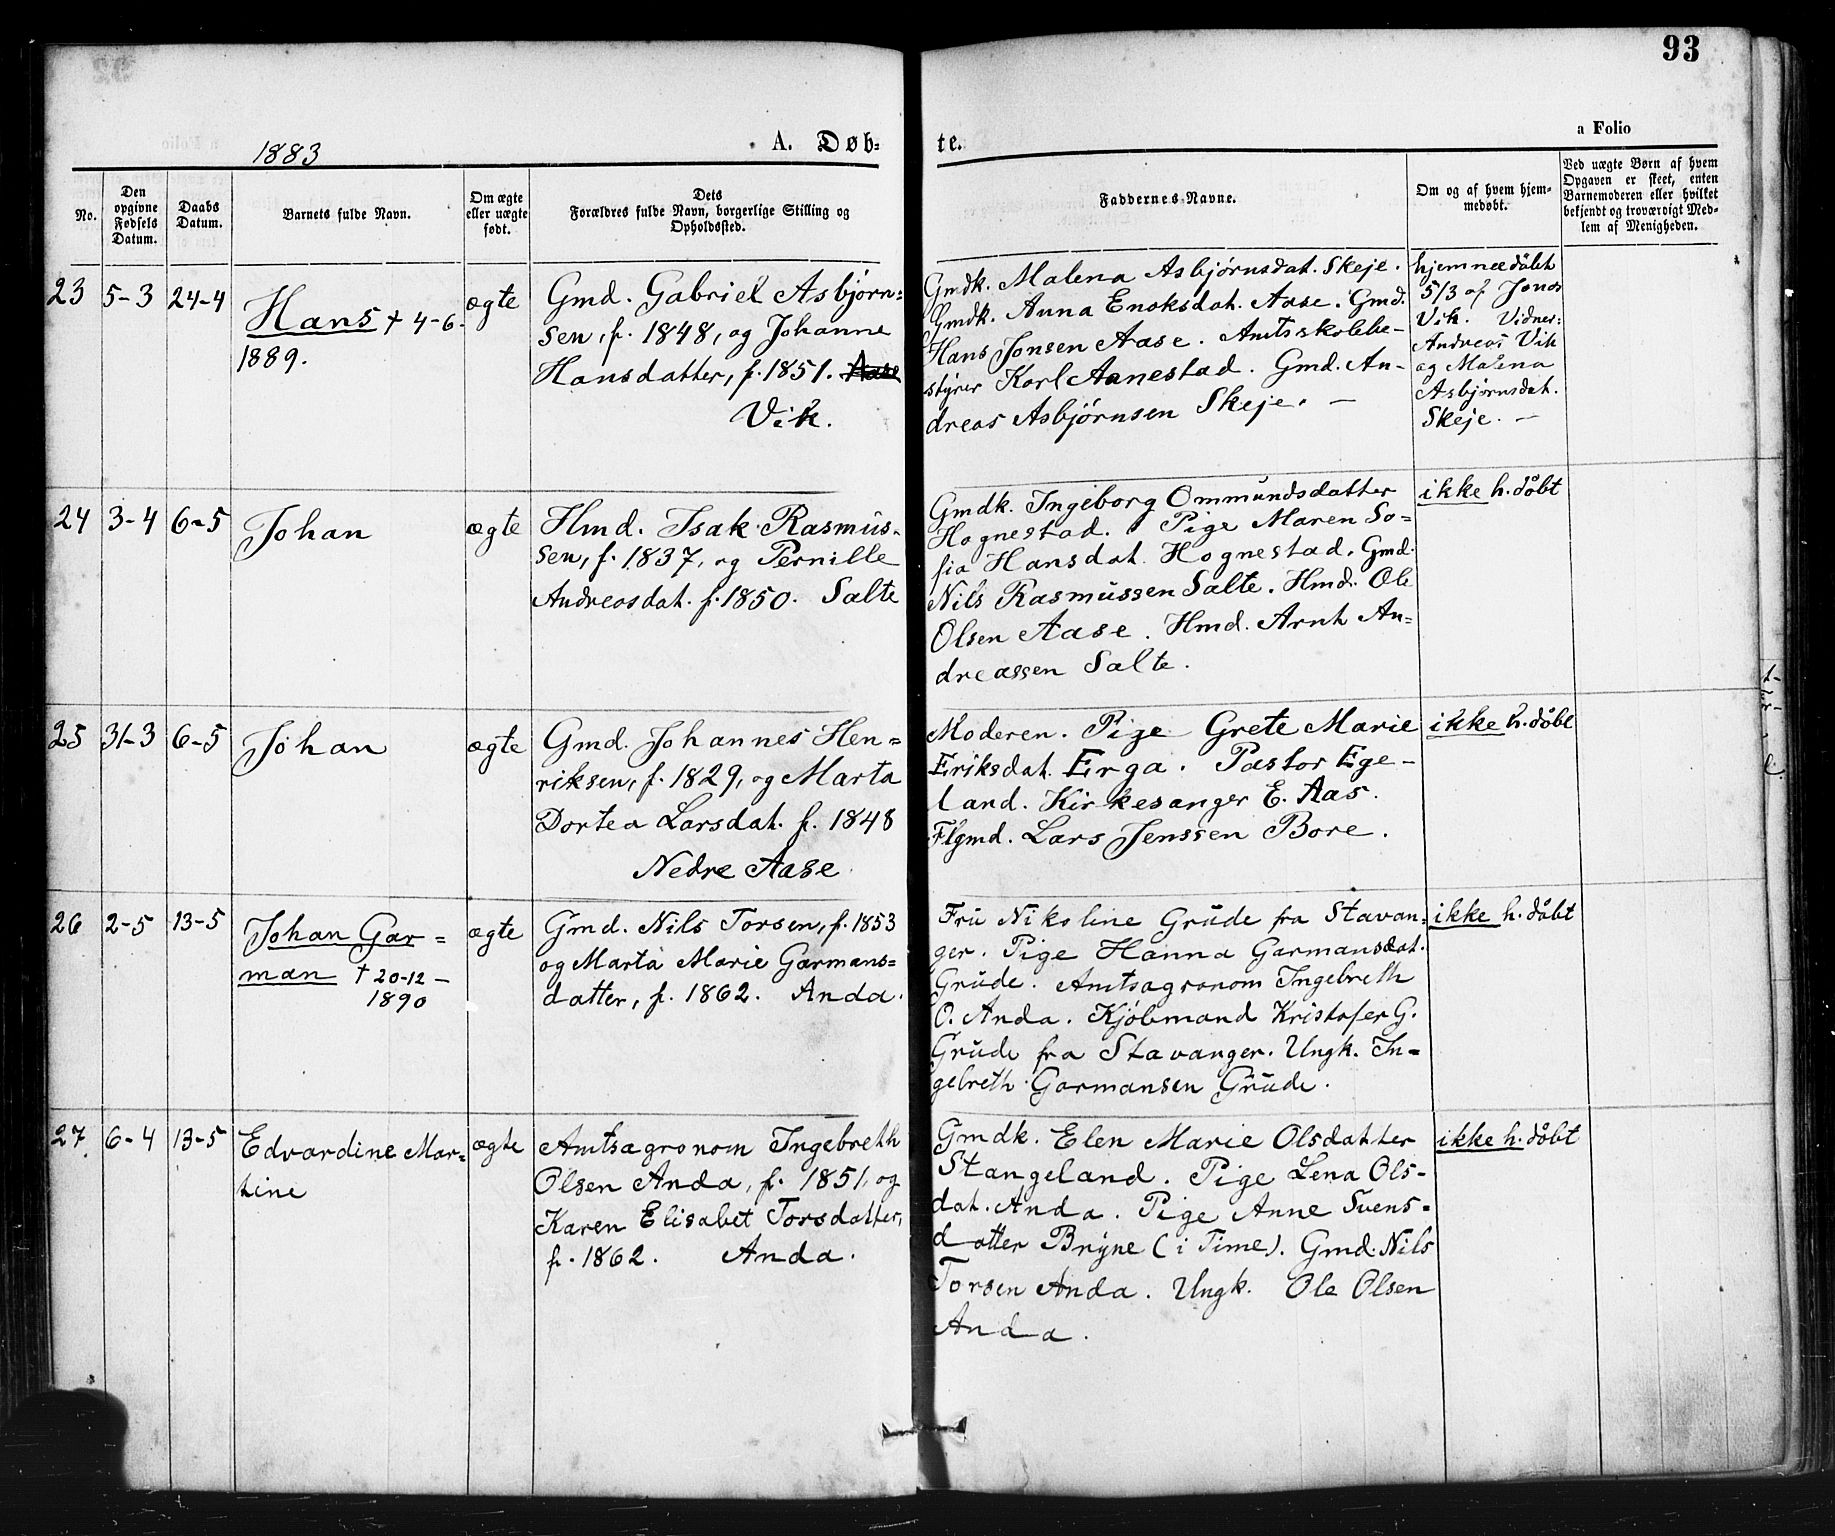 93
1883
A. Døb-
te.
a Folio
No.
Den
opgivne
Fødsels
Datum.
Daabs
Datum.
Barnets fulde Navn.
Om ægte
eller uægte
født.
Dets
Forældres fulde Navn, borgerlige Stilling og
Opholdssted.
Faddernes Navne.
Om og af hvem hjem-
medøbt.
Ved uægte Børn af hvem
Opgaven er skeet, enten
Barnemoderen eller hvilket
bekjendt og troværdigt Med-
lem af Menigheden.
23 5-3 24-4
Hans † 4-6-
1889.
ægte
Gmd. Gabriel Asbjørn-
sen, f. 1848, og Johanne
Hansdatter, f. 1851. Aase
Vik.
Gmdk. Malena Asbjørnsdat. Skeje.
Gmdk. Anna Enoksdat. Aase. Gmd.
Hans Jonsen Aase. Amtsskolebe-
styrer Karl Aanestad. Gmd. An-
dreas Asbjørnsen Skeje. —
hjemmedøbt
5/3 af Jonas
Vik. Vidner:
Andreas Vik
og Malena
Asbjørnsdat.
Skeje. —
24 3-4 6-5
Johan
ægte
Hmd. Isak Rasmus-
sen, f. 1837, og Pernille
Andreasdat. f. 1850. Salte
Gmdk. Ingeborg Ommundsdatter
Hognestad. Pige Maren So-
fia Hansdat. Hognestad. Gmd.
Nils Rasmussen Salte. Hmd. Ole
Olsen Aase. Hmd. Arnt An-
dreassen Salte.
ikke h. døbt
25 31-3 6-5
Johan
ægte
Gmd. Johannes Hen-
riksen, f. 1829, og Marta
Dortea Larsdat. f. 1848
Nedre Aase
Moderen. Pige Grete Marie
Eriksdat. Erga. Pastor Ege-
land. Kirkesanger E. Aas.
Flgmd. Lars Jenssen Bore.
ikke h. døbt
26 2-5 13-5
Johan Gar-
man † 20-12-
1890
ægte
Gmd. Nils Torsen, f. 1853
og Marta Marie Garmans-
datter, f. 1862. Anda.
Fru Nikoline Grude fra Stavan-
ger. Pige Hanna Garmansdat.
Grude. Amtsagronom Ingebreth
O. Anda. Kjøbmand Kristofer G.
Grude fra Stavanger. Ungk. In-
gebreth Garmansen Grude.
ikke h. døbt
27. 6-4 13-5
Edvardine Mar-
tine
ægte
Amtsagronom Ingebreth
Olsen Anda, f. 1851, og
Karen Elisabet Torsdatter,
f. 1862. Anda.
Gmdk. Elen Marie Olsdatter
Stangeland. Pige Lena Ols-
dat. Anda. Pige Anne Svens-
datter Bryne (i Time). Gmd. Nils
Torsen Anda. Ungk. Ole Olsen
Anda.
ikke h. døbt